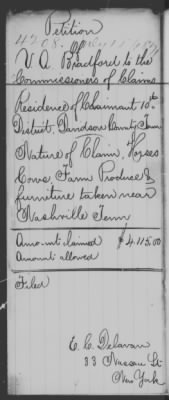 Petition
4208.
V. Q. Bradford to the
Commissioners of Claims
Residence of Claimant 10th
District. Davidson County, Tenn
Nature of Claim, Horses
Cows, Farm Produce &
furniture taken near
Nashville Tenn
Amount claimed $4,115.00
Amount allowed
Filed
E. C. Delavan
33 Nassau St
New York